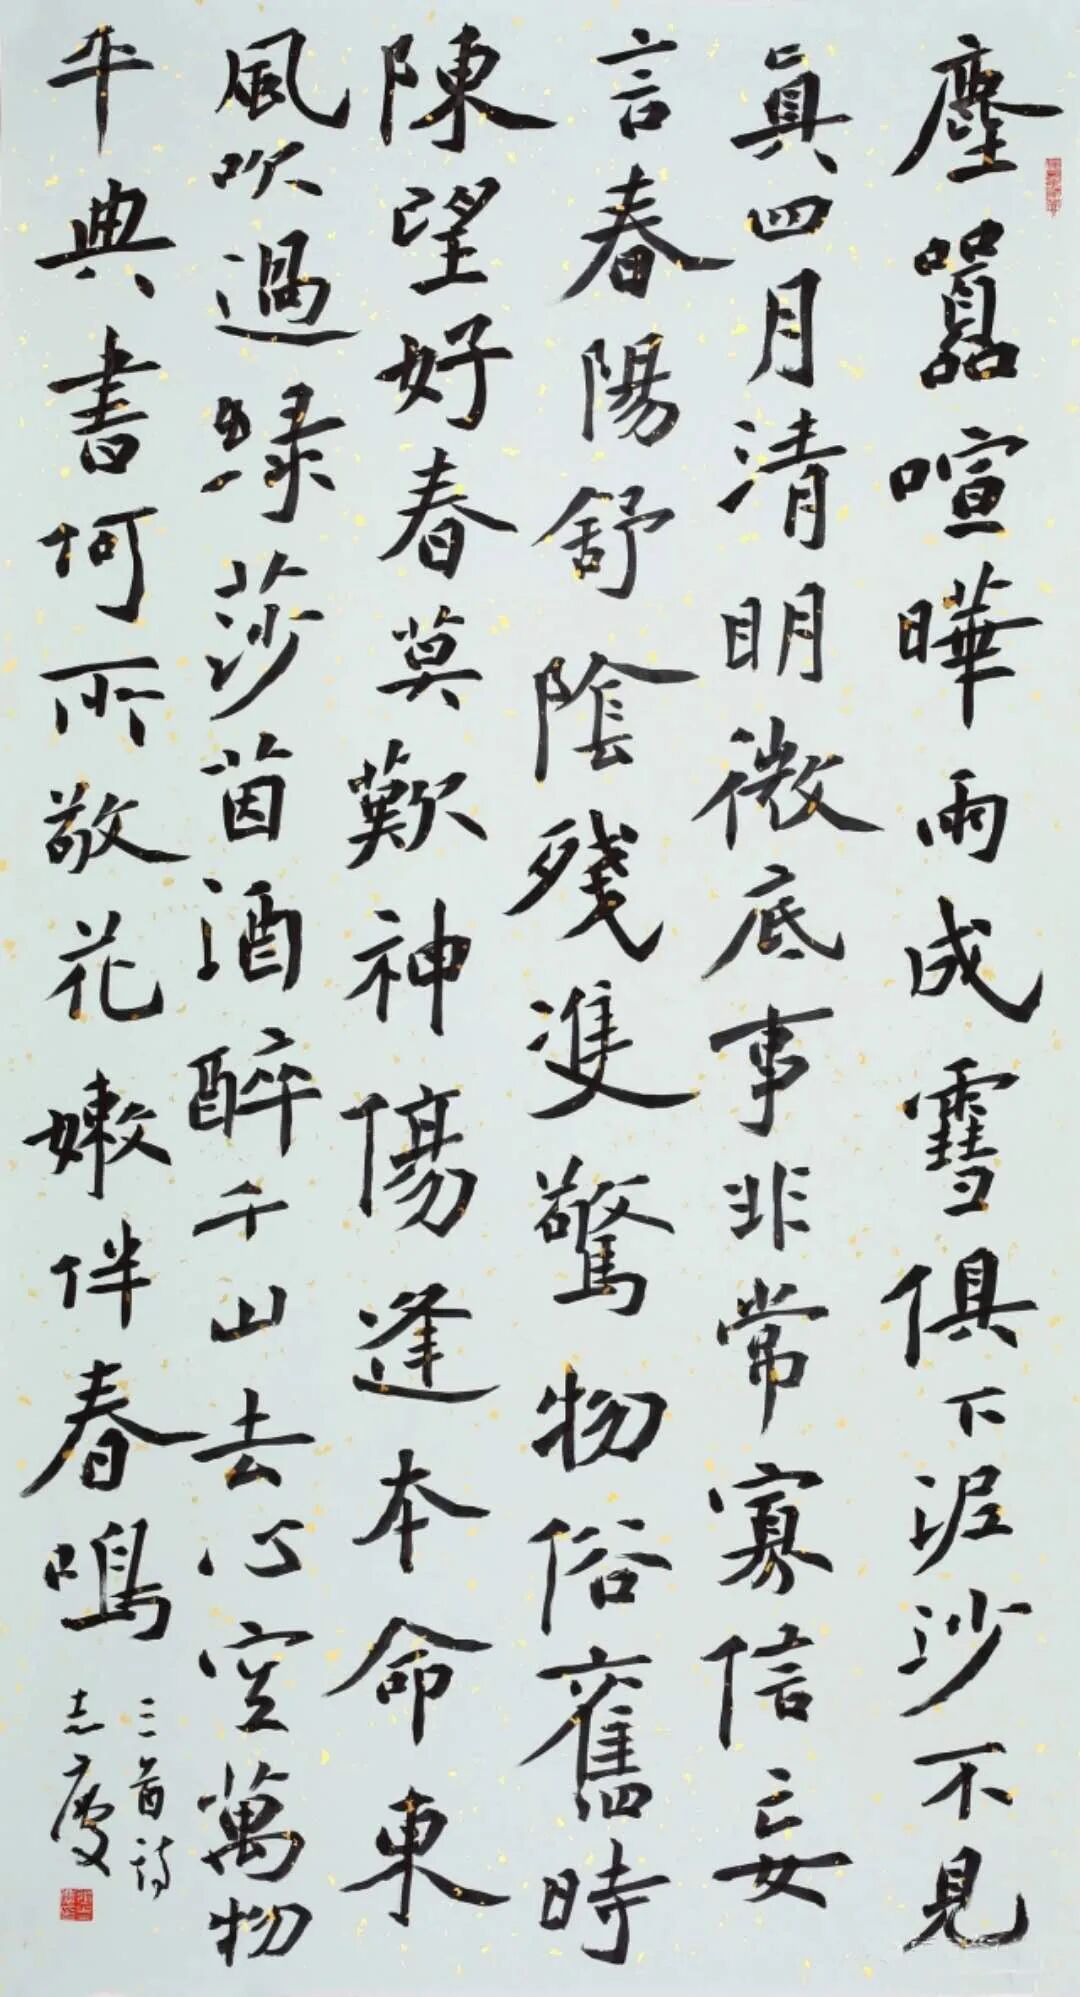 塵囂喧曄雨成雪俱下泥沙不見
真四月清明微底事非常寡信妄
言春陽舒陰殘雙驚物俗舊時
陳望好春莫歎神傷逢本命東
風吹過綠莎茵酒醉千山去心空萬物
平典書何所敬花嫩伴春鳴
三首詩
志慶